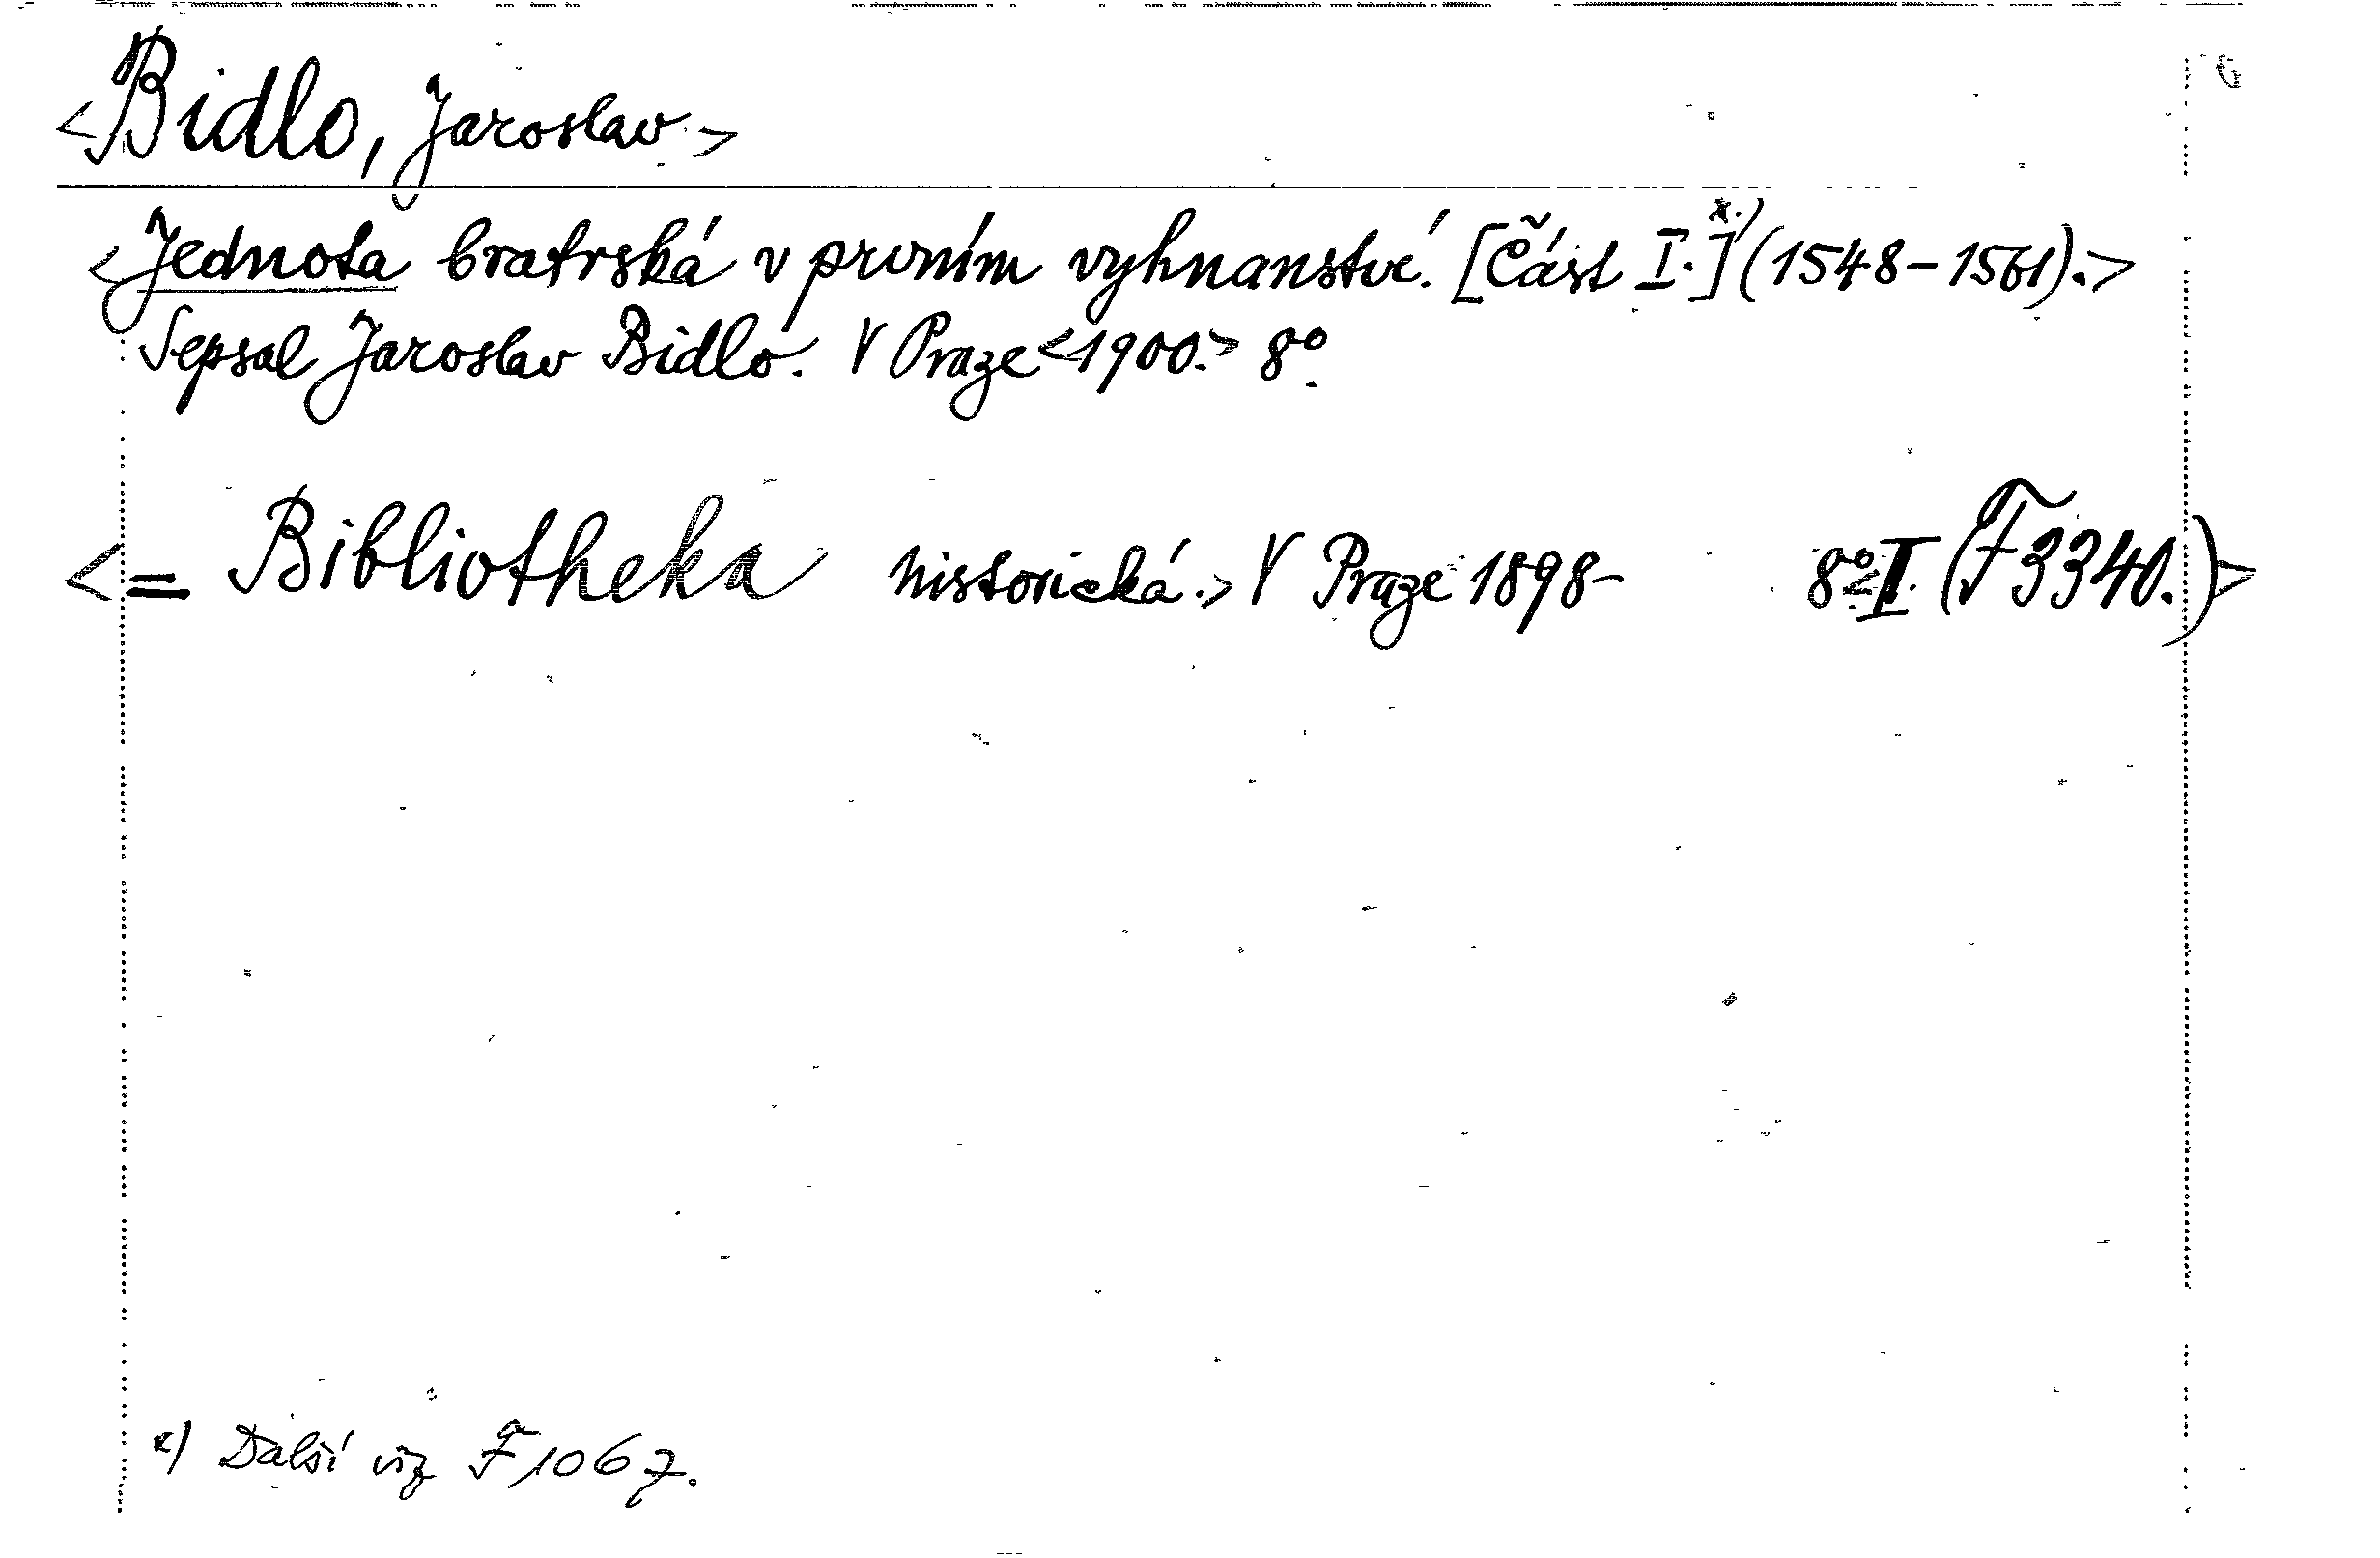 <Bidlo, Jaroslav>
<Jednota bratrská v prvním vyhnanství. [Část I.]x.) (1548–1561).>
Sepsal Jaroslav Bidlo. V Praze <1900.> 8º.
<= Bibliotheka historická.> V Praze 1898– 8º. <I. (F 3340.)>
x) Další viz F 1067.